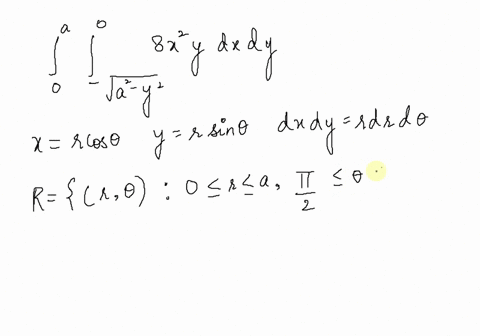 ∫₀ᵃ ∫_{-√(a²-y²)}^{0} 8x²y dx dy
x = r cosθ y = r sinθ dx dy = r dr dθ
R = {(r, θ) : 0 ≤ r ≤ a, π/2 ≤ θ